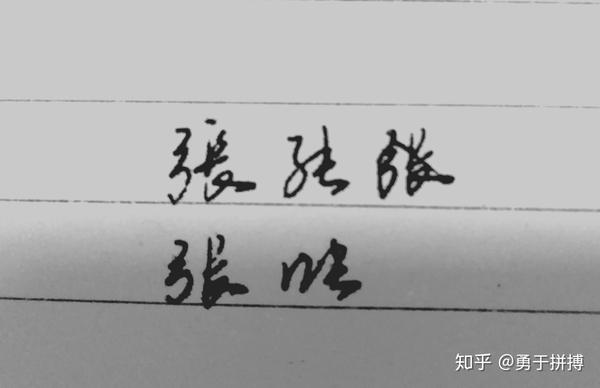 張 张 張
張 张
知乎 @勇于拼搏